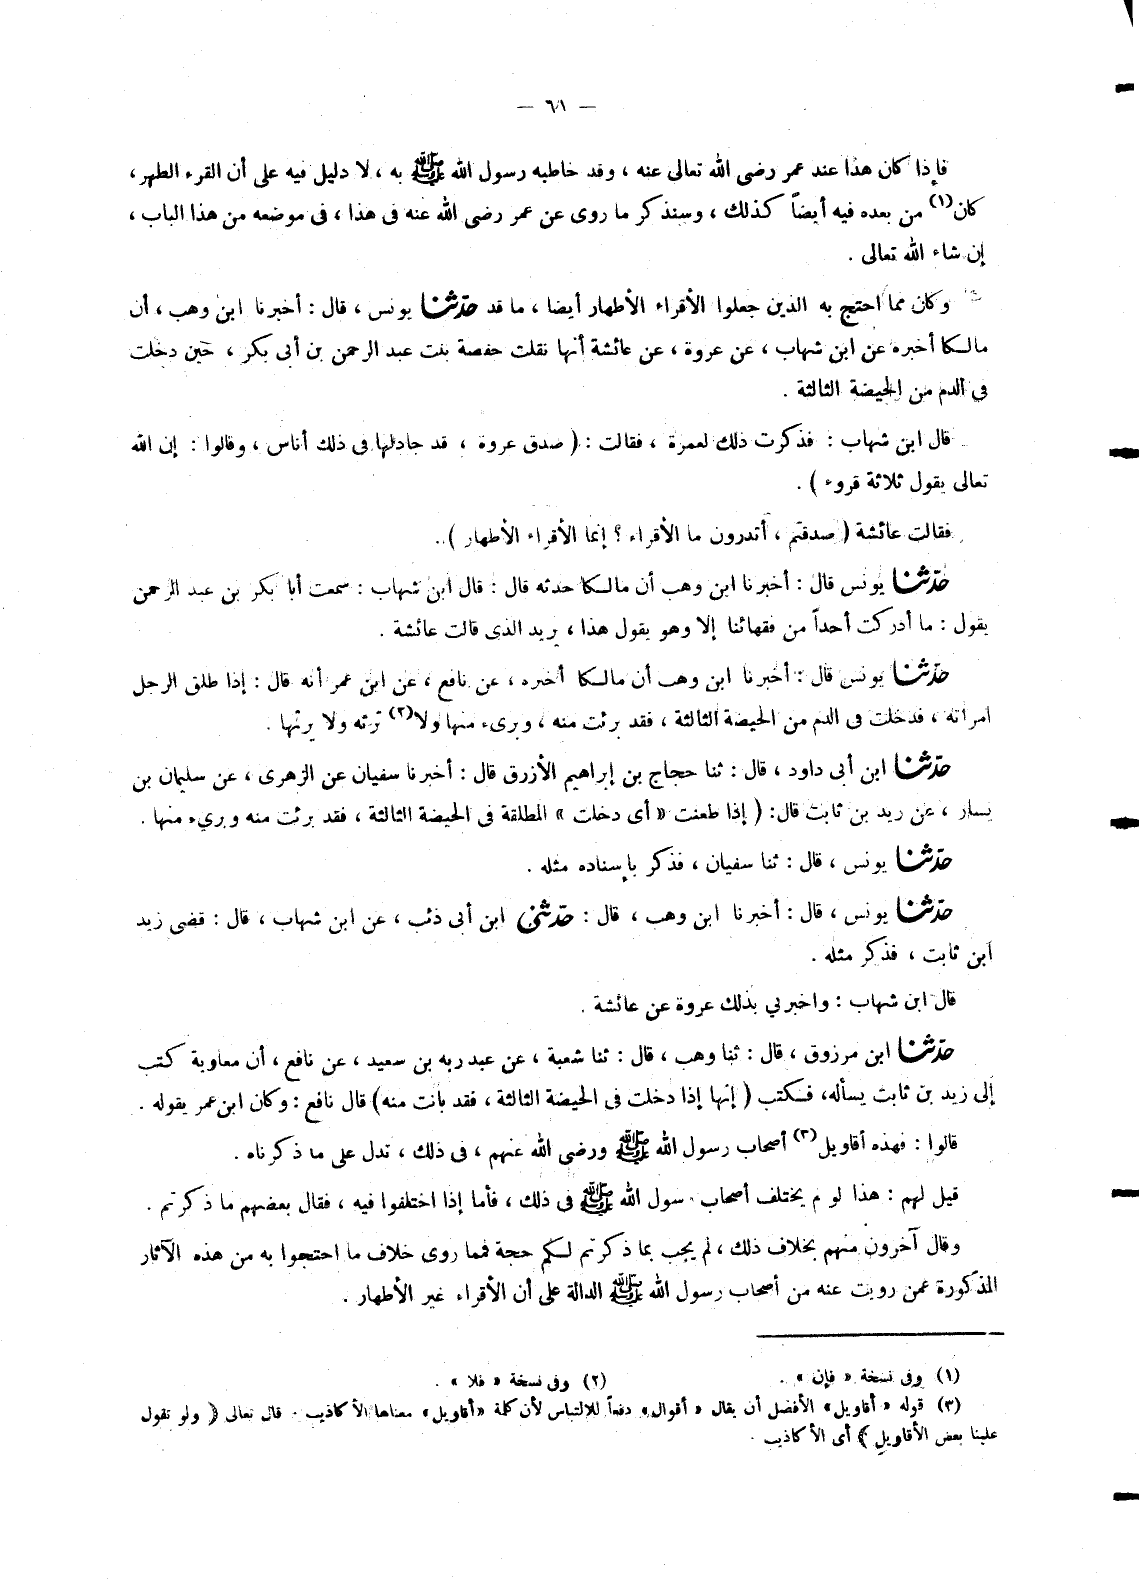 — ٦١ —
فإذا كان هذا عند عمر رضى الله تعالى عنه ، وقد خاطبه رسول الله ﷺ به ، لا دليل فيه على أن القرء الطهر ،
كان(١) من بعده فيه أيضاً كذلك ، وسنذكر ما روى عن عمر رضى الله عنه فى هذا ، فى موضعه من هذا الباب ،
إن شاء الله تعالى .
وكان مما احتج به الذين جعلوا الأقراء الأطهار أيضا ، ما قد حدّثنا يونس ، قال : أخبرنا ابن وهب ، أن
مالكا أخبره عن ابن شهاب ، عن عروة ، عن عائشة أنها نقلت حفصة بنت عبد الرحمن بن أبى بكر ، حين دخلت
فى الدم من الحيضة الثالثة .
قال ابن شهاب : فذكرت ذلك لعمرة ، فقالت : ( صدق عروة ، قد جادلها فى ذلك أناس ، وقالوا : إن الله
تعالى يقول ثلاثة قروء ) .
فقالت عائشة ( صدقتم ، أتدرون ما الأقراء ؟ إنما الأقراء الأطهار ) .
حدّثنا يونس قال : أخبرنا ابن وهب أن مالكا حدثه قال : قال ابن شهاب : سمعت أبا بكر بن عبد الرحمن
يقول : ما أدركت أحداً من فقهائنا إلا وهو يقول هذا ، يريد الذى قالت عائشة .
حدّثنا يونس قال : أخبرنا ابن وهب أن مالكا أخبره ، عن نافع ، عن ابن عمر أنه قال : إذا طلق الرجل
امرأته ، فدخلت فى الدم من الحيضة الثالثة ، فقد برئت منه ، وبرىء منها ولا(٢) ترثه ولا يرثها .
حدّثنا ابن أبى داود ، قال : ثنا حجاج بن إبراهيم الأزرق قال : أخبرنا سفيان عن الزهرى ، عن سليمان بن
يسار ، عن زيد بن ثابت قال: ( إذا طعنت « أى دخلت » المطلقة فى الحيضة الثالثة ، فقد برئت منه وبريء منها .
حدّثنا يونس ، قال : ثنا سفيان ، فذكر بإسناده مثله .
حدّثنا يونس ، قال : أخبرنا ابن وهب ، قال : حدّثنى ابن أبى ذئب ، عن ابن شهاب ، قال : قضى زيد
ابن ثابت ، فذكر مثله .
قال ابن شهاب : واخبرني بذلك عروة عن عائشة .
حدّثنا ابن مرزوق ، قال : ثنا وهب ، قال : ثنا شعبة ، عن عبد ربه بن سعيد ، عن نافع ، أن معاوية كتب
إلى زيد بن ثابت يسأله، فكتب ( إنها إذا دخلت فى الحيضة الثالثة ، فقد بانت منه) قال نافع : وكان ابن عمر يقوله .
قالوا : فهذه أقاويل(٣) أصحاب رسول الله ﷺ ورضى الله عنهم ، فى ذلك ، تدل على ما ذكرناه .
قيل لهم : هذا لو لم يختلف أصحاب رسول الله ﷺ فى ذلك ، فأما إذا اختلفوا فيه ، فقال بعضهم ما ذكرتم .
وقال آخرون منهم بخلاف ذلك ، لم يجب بما ذكرتم لكم حجة فمما روى خلاف ما احتجوا به من هذه الآثار
المذكورة عمن رويت عنه من أصحاب رسول الله ﷺ الدالة على أن الأقراء غير الأطهار .
(١) وفى نسخة « فإن » . (٢) وفى نسخة « فلا » .
(٣) قوله « أقاويل» الأفضل أن يقال « أقوال» دفعاً للالتباس لأن كلمة «أقاويل» معناها الأكاذيب . قال تعالى ﴿ ولو تقول
علينا بعض الأقاويل ﴾ أى الأكاذيب .